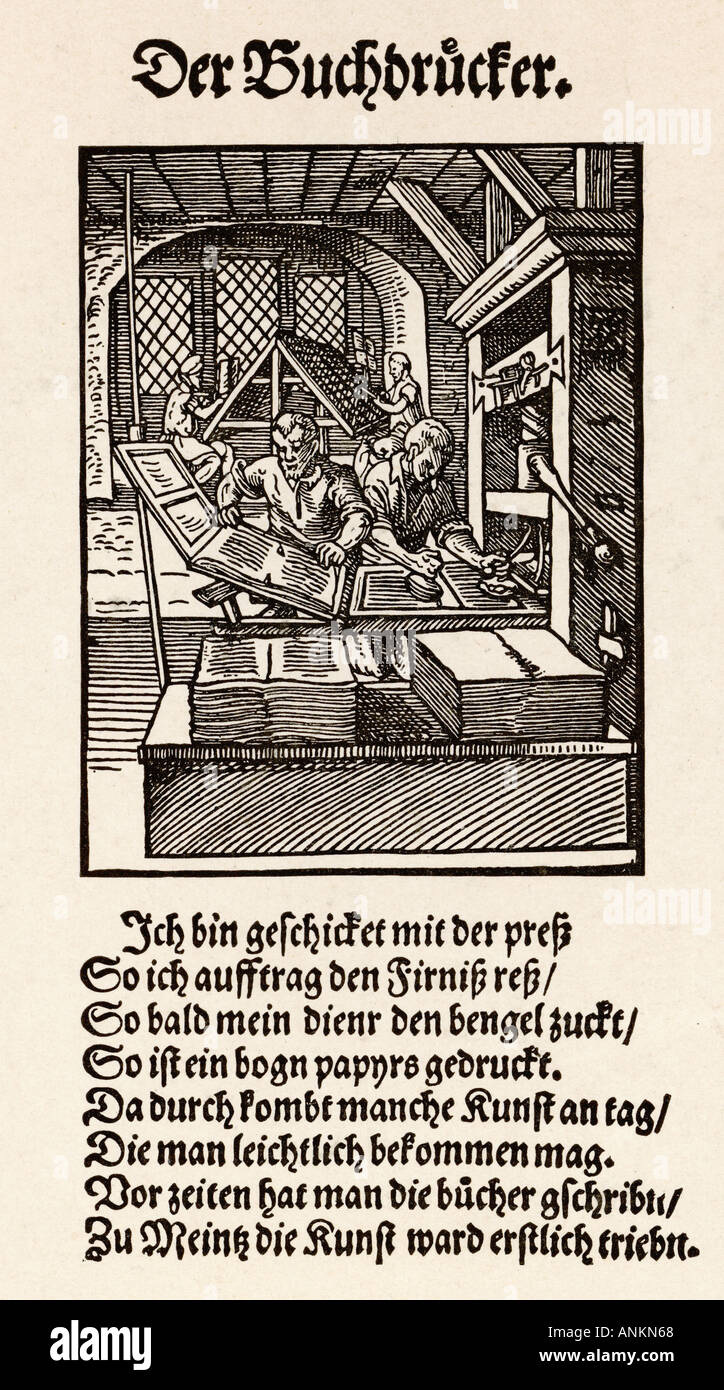 Der Buchdruͤcker.
Ich bin geſchicket mit der preß
So ich aufftrag den Firniß reß/
So bald mein dienr den bengel zuckt/
So iſt ein bogn papyrs gedruckt.
Da durch kombt manche Kunſt an tag/
Die man leichtlich bekommen mag.
Vor zeiten hat man die buͤcher gſchribn/
Zu Meintz die Kunſt ward erſtlich triebn.
alamy
Image ID: ANKN68
www.alamy.com